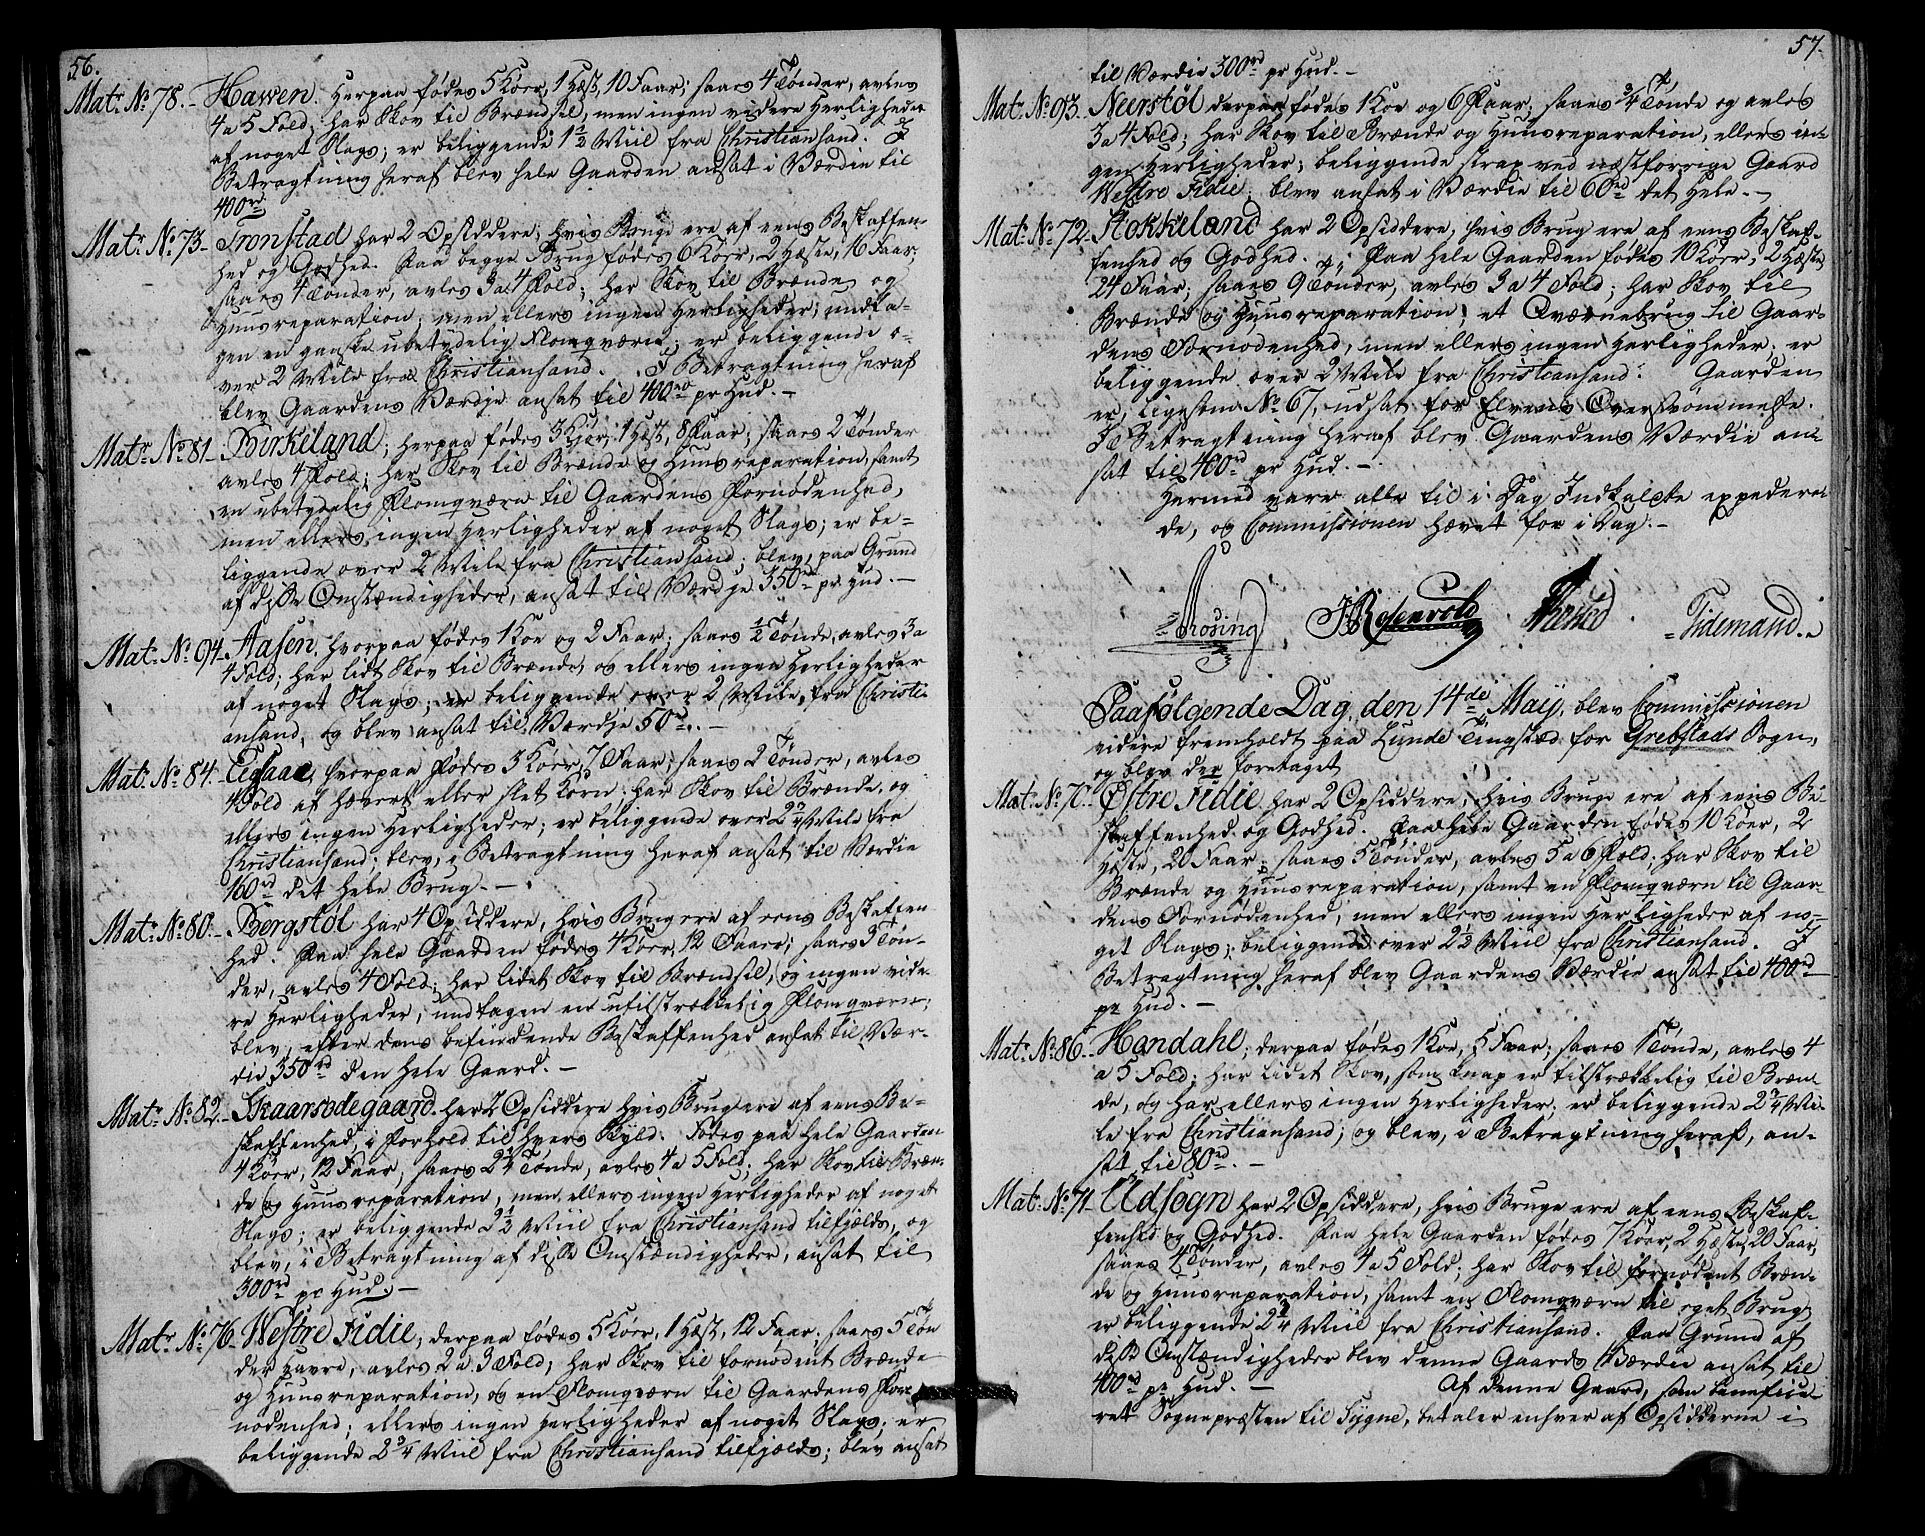 56.
Mat: No 78. Hawen. Herpaa fødes 5 Köer, 1 Hæst, 10 Faar; saaes 4 Tønder, avles
4 a 5 Fold; har Skov til Brændsel, men ingen videre Herligheder
af noget Slags; er beliggende 1 1/2 Miil fra Christiansand. I
Betragtning heraf blev hele Gaarden ansat i Værdie til
400rd
Mat: No 73. Tronstad har 2 Opsiddere, hvis Brug ere af eens Beskaffen-
hed og Godhed. Paa begge Brug fødes 6 Köer, 2 Hæste, 16 Faar;
saaes 4 Tønder, avles 3 a 4 Fold; har Skov til Brænde og
Huusreparation; men ellers ingen Herligheder, undta-
gen en ganske ubetydelig Flomqværn; er beliggende o-
ver 2 Mile fra Christiansand. I Betragtning heraf
blev Gaardens Værdje ansat til 400rd pr Hud. -
Mat: No 81 - Birkeland; herpaa fødes 3 Kjør, 1 Hæst, 8 Faar; saaes 2 Tønder
avles 4 Fold; har Skov til Brænde og Huusreparation, samt
en ubetydelig Flomqværn til Gaardens Fornødenhed,
men ellers ingen Herligheder af noget Slags; er be-
liggende over 2 Mile fra Christiansand; blev, paa Grund
af disse Omstændigheder, ansat til Værdje 350rd pr Hud. -
Mat: No 94 - Aasen, hvorpaa fødes 1 Koe og 2 Faar; saaes 1/2 Tønde, avles 3 a
4 Fold; har lidt Skov til Brænde, og ellers ingen Herligheder
af noget Slags; er beliggende over 2 Mile fra Christi-
ansand, og blev ansat til Værdje 50rd. -
Mat: No 84. hvorpaa fødes 3 Köer, 7 Faar; saaes 2 Tønder, avles
4 Fold af Havert eller slet Korn; har Skov til Brænde, og
ellers ingen Herligheder; er beliggende over 2 3/4 Mile fra
Christiansand; blev, i Betragtning heraf ansat til Værdie
160rd det hele Brug. -
Mat: No 80. - Bergstøl har 4 Opsiddere, hvis Brug ere af eens Beskaffen
hed. Paa hele Gaarden fødes 4 Köer, 12 Faar; saaes 3 Tøn-
der, avles 4 Fold; har lidet Skov til Brændsel, og ingen vide-
re Herligheder, undtagen en utilstrækkelig Flomqværn;
blev, efter dens befindende Beskaffenhed ansat til Vær-
die 350rd den hele Gaard. -
Mat: No 82. - Skaarsødegaard har 2 Opsiddere hvis Brug ere af eens Be-
skaffenhed, i Forhold til hvers Skyld. Fødes paa hele Gaarden
4 Köer, 12 Faar, saaes 2 1/4 Tønde, avles 4 a 5 Fold; har Skov til Bræn-
de og Huusreparation, men ellers ingen Herligheder af noget
Slags; er beliggende 2 1/2 Miil fra Christiansand tilfjelds, og
blev, i Betragtning af disse Omstændigheder, ansat til
300rd pr Hud. -
Mat: No 76 - Westre Fidie, derpaa fødes 5 Köer, 1 Hæst, 12 Faar; saaes 5 Tøn
der Havre, avles 2 a 3 Fold; har Skov til fornødent Brænde
og Huusreparation, og en Flomqværn til Gaardens For-
nødenhed; ellers ingen Herligheder af noget Slags; er
beliggende 2 3/4 Miil fra Christiansand tilfjelds; blev ansat
57.
til Værdie 300rd pr Hud. -
Mat: No 93. Neerstøl derpaa fødes 1 Koe og 6 Faar; saaes 3/4 Tønde og avles
3 a 4 Fold; har Skov til Brænde og Huusreparation, ellers in-
gen Herligheder; beliggende strax ved næstforrige Gaard
Westre Fidie; blev ansat i Værdie til 60rd det hele. -
Mat: No 72. Stokkeland har 2 Opsiddere, hvis Brug ere af eens Beskaf-
fenhed og Godhed. Paa hele Gaarden fødes 10 Köer, 2 Hæste,
24 Faar; saaes 9 Tønder, avles 3 a 4 Fold; har Skov til
Brænde og Huusreparation, et Qværnebrug til Gaar-
dens Fornødenhed, men ellers ingen Herligheder. er
beliggende over 2 Mile fra Christiansand. Gaarden
er, ligesom No 67, udsat for Elvens Oversvømmelse.
I Betragtning heraf blev Gaardens Værdie an-
sat til 400rd pr Hud. -
Hermed vare alle til i Dag Indkaldte expedere-
de, og Commissionen hævet for i Dag. -
Arosing JBRosenvold Tidemand.
Paafølgende Dag, den 14de Maij, blev Commissionen
videre fremholdt paa Lunde Tingsted for Grebstads Sogn,
og blev der foretaget
Mat: No 70. Østre Fidie har 2 Opsiddere, hvis Bruge ere af eens Be-
skaffenhed og Godhed. Paa hele Gaarden fødes 10 Köer, 2
Hæste, 20 Faar; saaes 5 Tønder, avles 5 a 6 Fold; har Skov til
Brænde og Huusreparation, samt en Flomqværn til Gaar-
dens Fornødenhed, men ellers ingen Herligheder af no-
get Slags; beliggende over 2 1/2 Miil fra Christiansand. I
Betragtning heraf blev Gaardens Værdie ansat til 400rd
pr Hud. -
Mat: No 86. - Handahl; derpaa fødes 1 Koe, 5 Faar; saaes 1 Tønde, avles 4
a 5 Fold; har lidet Skov, som knap er tilstrækkelig til Bræn-
de, og har ellers ingen Herligheder; er beliggende 2 3/4 Mi-
le fra Christiansand; og blev, i Betragtning heraf, an-
sat til 80rd. -
Mat: No 71 - Udsogn har 2 Opsiddere, hvis Bruge ere af eens Beskaf-
fenhed og Godhed. Paa hele Gaarden fødes 7 Köer, 2 Hæste, 20 Faar,
saaes 4 Tønder, avles 4 a 5 Fold; har Skov til fornødent Bræn-
de og Huusreparation, samt en Flomqværn til eget Brug;
er beliggende 2 1/4 Miil fra Christiansand. Paa Grund af
disse Omstændigheder blev denne Gaards Værdie ansat til
400rd pr Hud. - Af denne Gaard, som benefice-
ret Sognepræsten til Sygne, betaler enhver af Opsidderne i